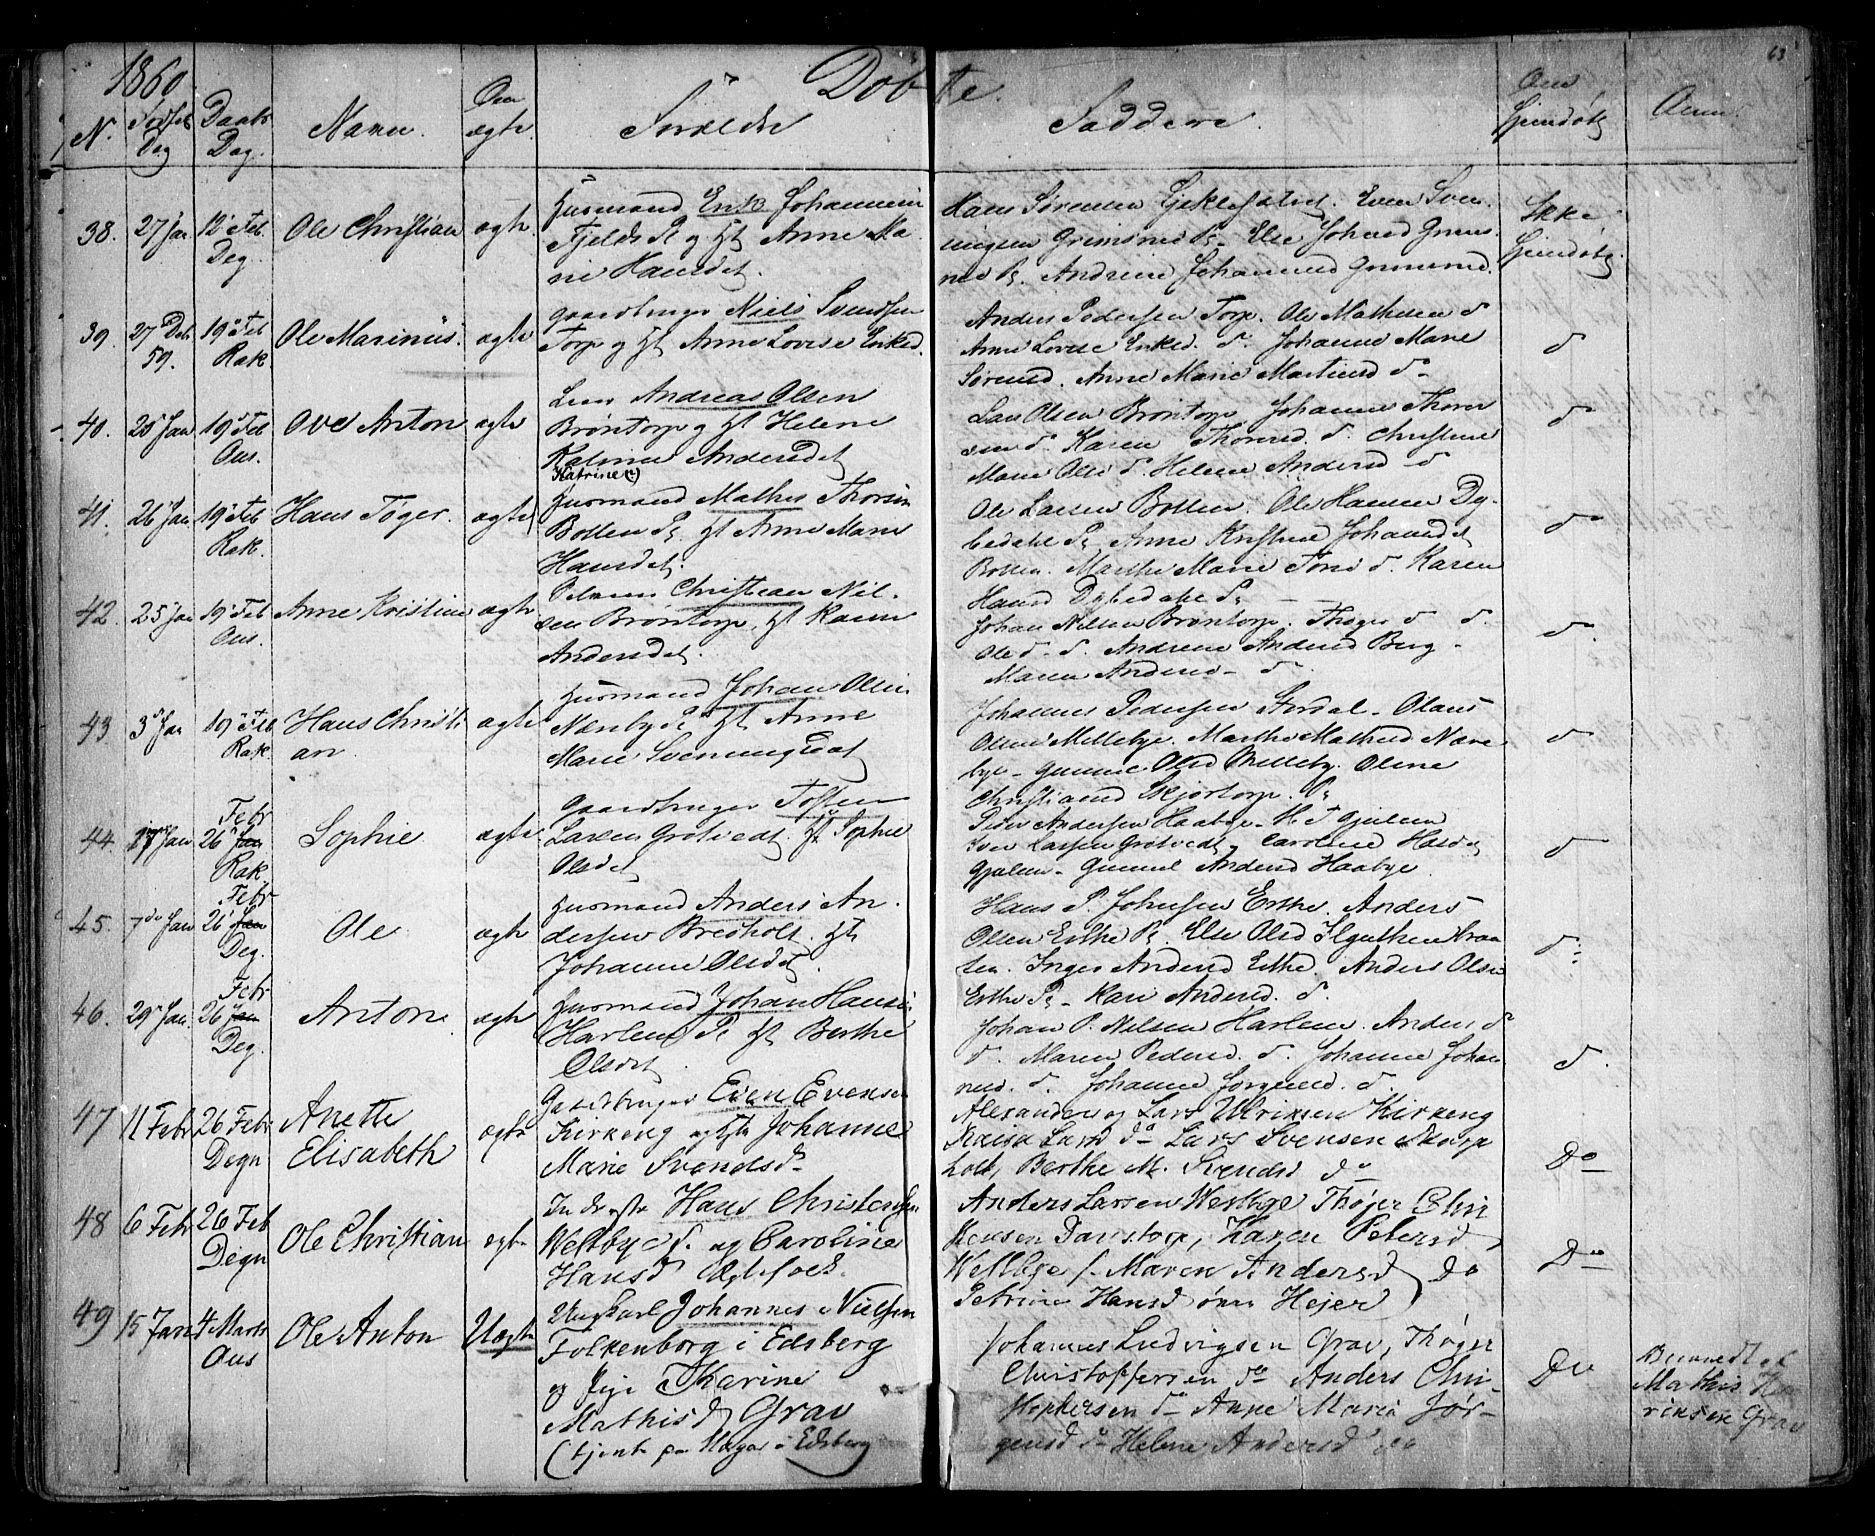 1860 Døbte. 63
N. Fødsels Dag Daabs Dag. Navn. Om ægte Forældre Faddere. Om hjemdøbt Anm.
38. 27 Jan 12te Feb Deg. Ole Christian ægte Husmand Erik Johannesen
Fjelds P. og H. Anne Ma
rie Hansdet.
Hans Sørensen Even Sven
ningsen Grimsrud P. Else Johnsd Grims
rud P. Andrine Johannesd Grimsrud.
Ikke
hjemdøbt.
39. 27 Det 59. 19de Feb Rak. Ole Marinus. ægte Gaardbruger Niels Svendsen
Torp og H. Anne Lovise Eriksd.
Anders Pedersen Torp. Ole Mathisen do
Anne Lovise Eriksd. do. Johanne Marie
Sørensd. Anne Marie Martinsd do
do
40. 20 Jan 19de Feb Aus. Ove Anton ægte Andreas Olsen
Brøntorp og H. Helene
Katrine Andersdet
Katrine(?)
Lars Olsen Brøntorp Johannes Thorer
sen do. Karen Thoresd. do. Christine
Marie Olsd do. Helene Andersd do
do
41. 26 Jan 19de Feb Rak. Hans Tøger. ægte Husmand Mathis Thorsen
Botten P. H. Anne Marie
Hansdet.
Ole Larsen Botten. Ole Hansen Dy
bedahl P. Anne Kristine Johansdet
Botten. Marthe Marie Tonsd do. Karen
Hansd Dybedahl P.
do
42. 25 Jan 19de Feb Aus. Anne Kristine ægte Christian Nil
sen Brøntorp, H. Karen
Andersdet.
Johan Nilsen Brøntorp. Thøger do do.
Ole do. do. Andrene Andersd Berg
Maren Andersd do.
do.
43 3de Jan 19de Feb Rak. Hans Christi
an. ægte Husmand Johan Olsen
Nærebye P. H. Anne
Marie Svenningsdat
Johannes Pedersen Fordal. Olaus
Olsen Mellebye. Marthe Mathisd Nære
bye. Gunnil Olsd Mellebye. Oline
Christiansd Skjørtorp. P.
do
44. 17 Jan Febr 26de Jan Rak. Sophie ægte Gaardbruger Tosten
Larsen Grøtvedt. H. Sophie
Olsdet
Peder Andersen Haabye. H. T. Gjulem
Iver Larsen Grøtvedt, Caroline Hansdet
Gjulem. Gunnil Andersd Haabye.
do
45. 7de Jan Febr 26de Jan Deg. Ole. ægte Husmand Anders An
dersen Bredholt. H.
Johanne Olsdet.
Hans P. Johnsen Erthe. Anders
Olsen Erthe P. Else Olsd
Inger Andersd Erthe. Anders Olsen
Erthe P. Kari Andersd. do.
do.
46. 29 Jan. Febr 26 Jan Deg. Anton. ægte Husmand Johan Hansen
Harlem P. H. Berthe
Olsdet.
Johan P. Nilsen Harlem. Anders do
do. Maren Pedersd. do. Johanne Johan
nesd. do. Johanne Jørgensd. do.
do.
47 11 Febr 26 Febr Degn Anette
Elisabeth ægte Gaardbruger Even Evensen
Kirkeng og H. Johanne
Marie Svendsdr
Alexander og Lars Ulriksen Kirkeng
Kaisa Larsd do Lars Svensen Skorp
holt, Berthe M. Svendsd do
Do
48 6 Febr 26 Feb Degn Ole Christian ægte Inderste Hans Christensen
Westbye P. og Caroline
Hansd Ægtefolk.
Anders Larsen Westbye Thøjer Chri
stensen Davstorp, Karen Petersd
Westbye / Maren Andersd do
Petrine Hansd øvre Hejer
Do
49 15 Jan 4 Marts Aus Ole Anton Uægte Ungkarl Johannes Nielsen
Folkenborg i Edsberg
og Pige Karine
Mathisd Grav
(tjente paa i Edsberg
Johannes Ludvigsen Grav, Thøger
Christoffersen do Anders Chri
stophersen do Anne Maria Jør
gensd do Helene Andersd do
Do
af
Mathis Hen
riksen Grav